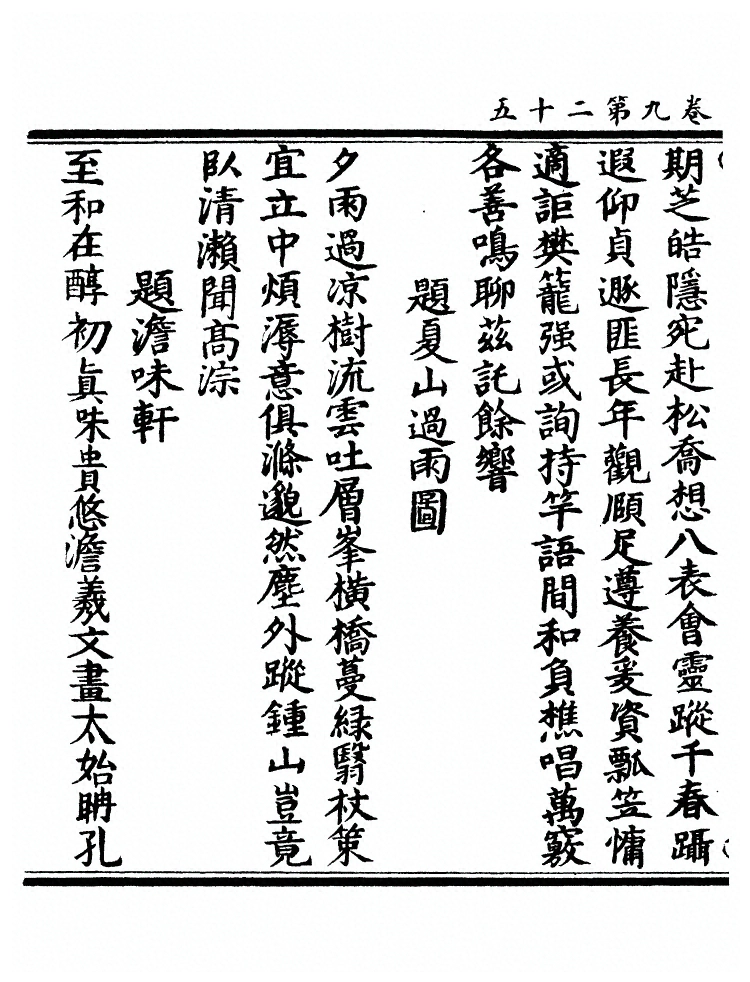 卷九第二十五
期芝皓隱宛赴松喬想八表會靈蹤千春躡
遐仰貞遯匪長年觀頤足遵養爰資瓢笠慵
適詎樊籠强或詢持竿語間和負樵唱萬竅
各善鳴聊茲託餘響
題夏山過雨圖
夕雨過凉樹流雲吐層峯橫橋蔓緑翳杖策
宜立中煩溽意俱滌邈然塵外蹤鍾山豈竟
臥清瀨聞高淙
題澹味軒
至和在醇初眞味貴悠澹羲文畫太始聃孔